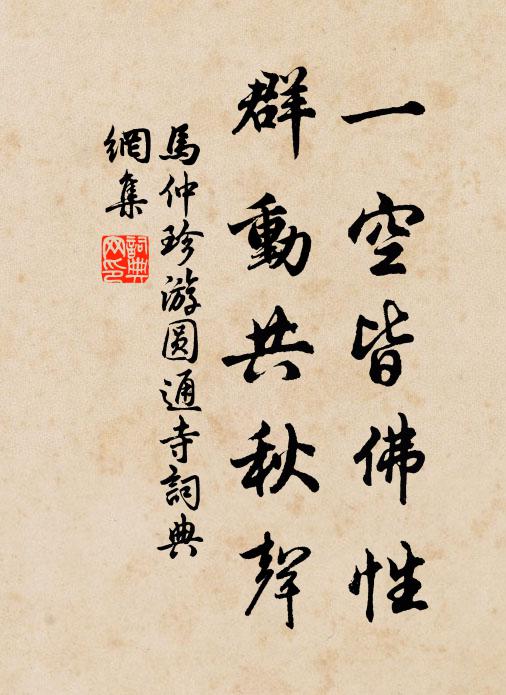 一空皆佛性
群動共秋聲
馬仲珍游圆通寺詞典
網集
詞典
网印